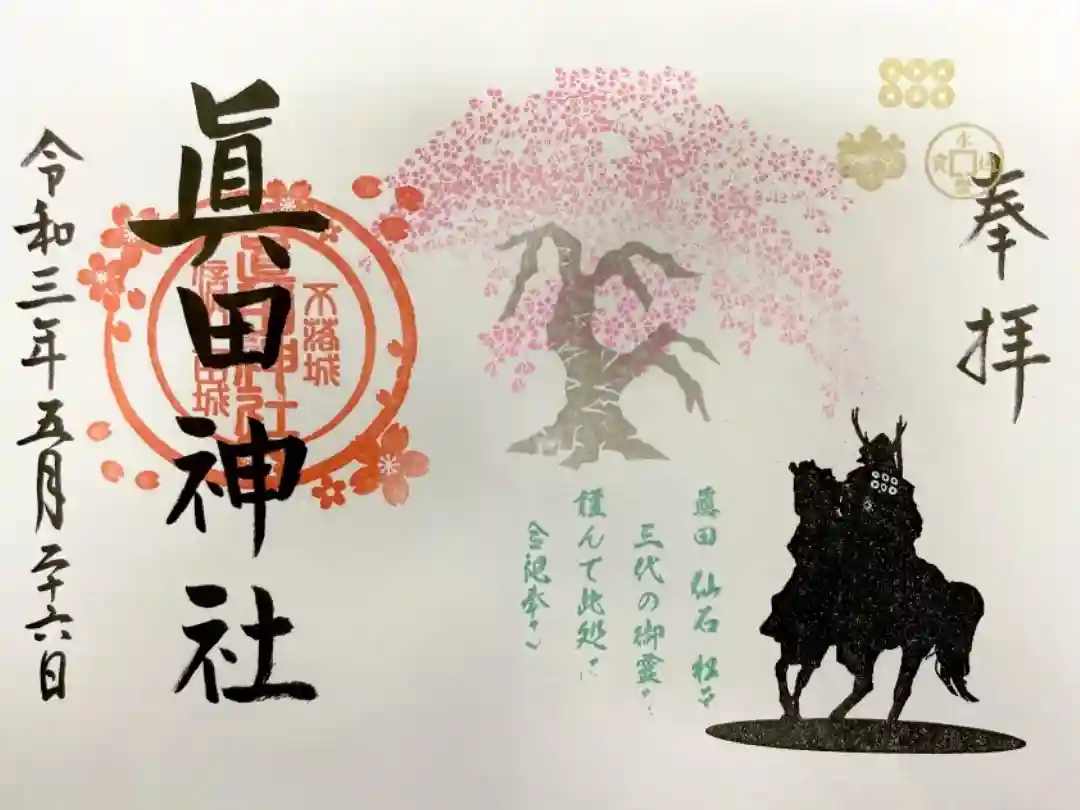 奉拝
眞田 仙石 松平
三代の御霊
謹んで此処に
合祀奉
眞田神社
不落城
眞田神社
令和三年五月二十六日